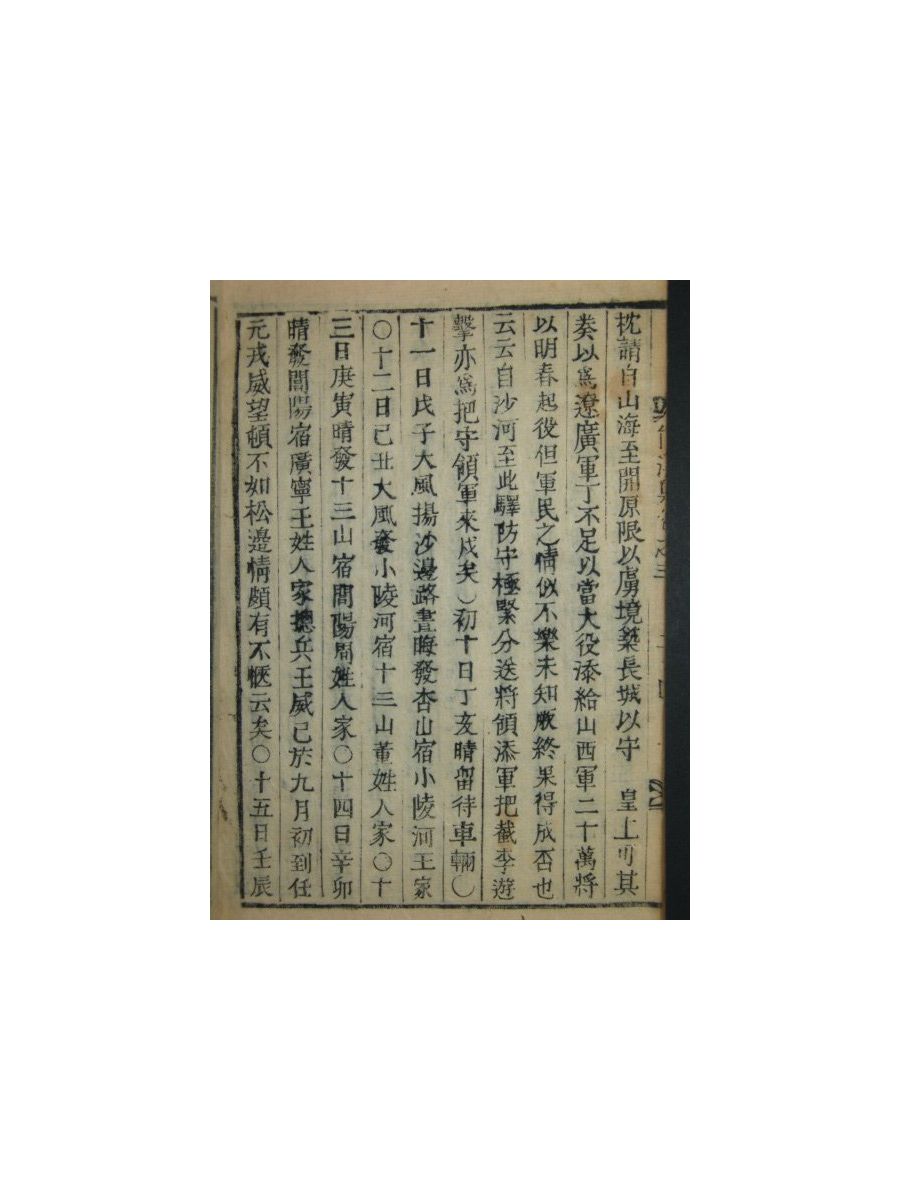 枕請自山海至開原限以虜境築長城以守　皇上可其
奏以爲遼廣軍丁不足以當大役添給山西軍二十萬將
以明春起役但軍民之情似不樂未知厥終果得成否也
云云自沙河至此驛防守極緊分送將領添軍把截李遊
擊亦爲把守領軍來戍矣○初十日丁亥晴留待車輛○
十一日戊子大風揚沙邊路晝晦發杏山宿小陵河王家
○十二日己丑大風發小陵河宿十三山董姓人家○十
三日庚寅晴發十三山宿閭陽周姓人家○十四日辛卯
晴發閭陽宿廣寧王姓人家摠兵王威已於九月初到任
元戎威望頓不如松邊情頗有不愜云矣○十五日壬辰